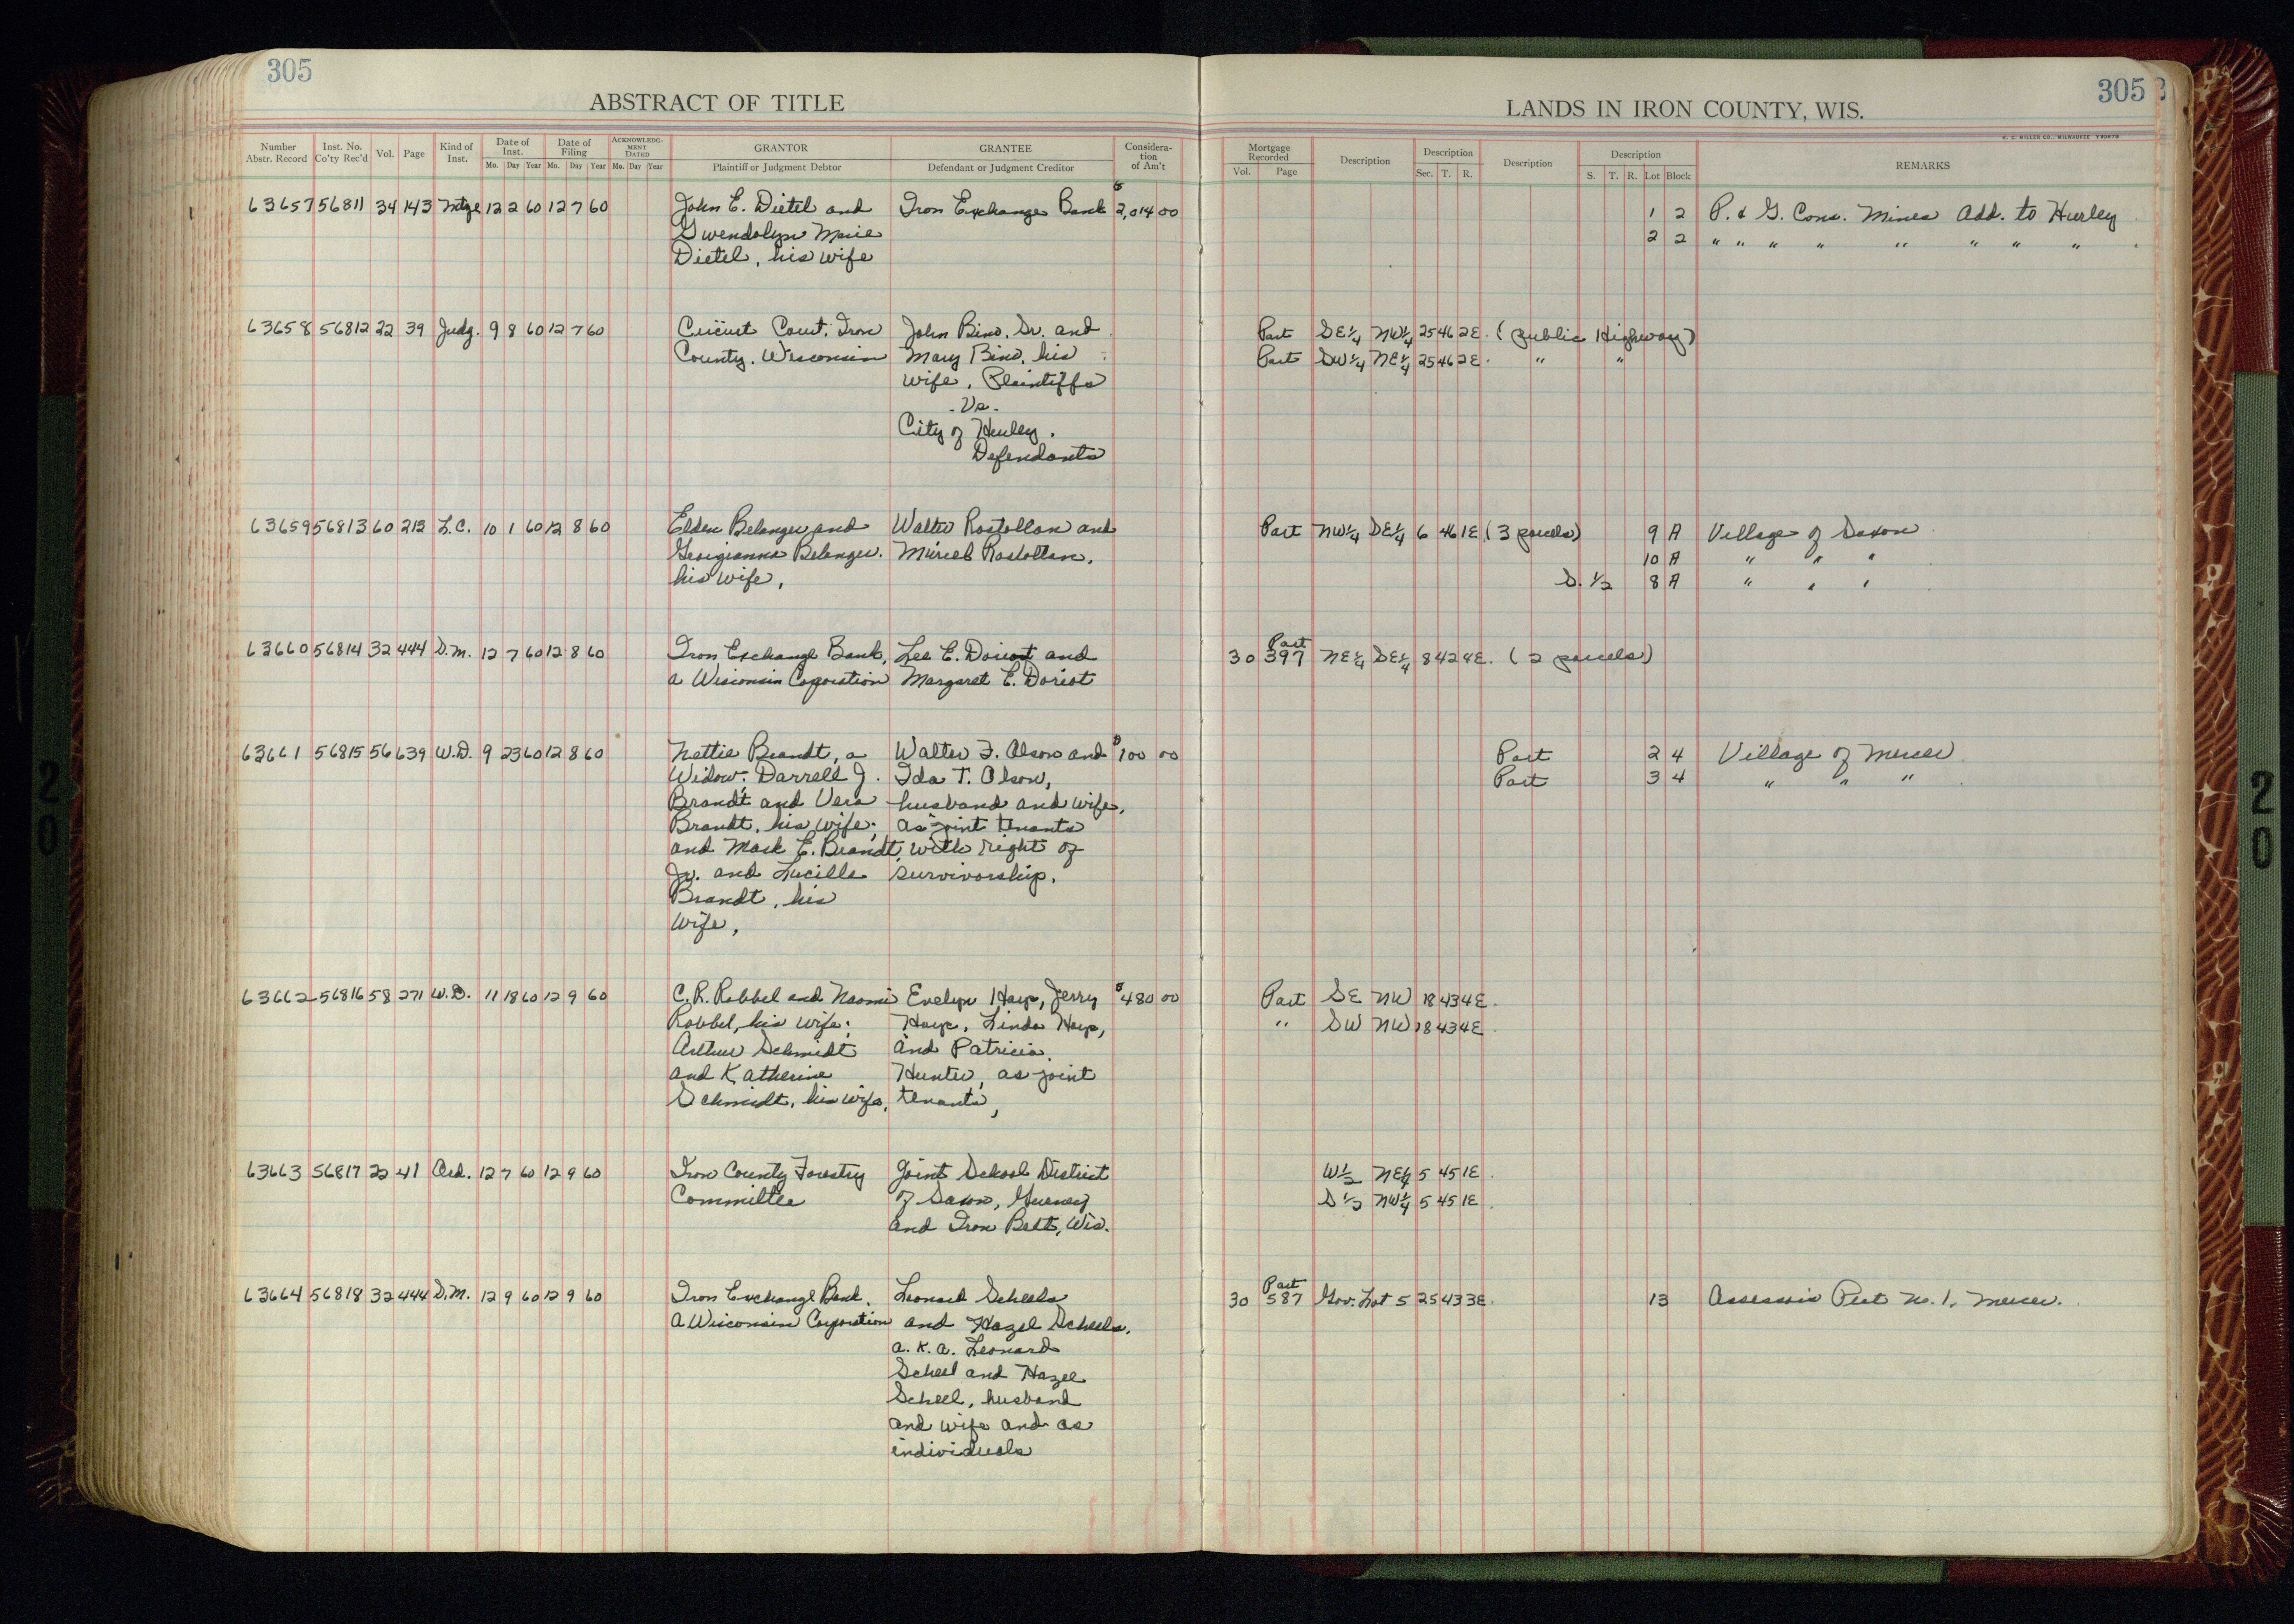 305
305
ABSTRACT OF TITLE
LANDS IN IRON COUNTY, WIS.
Number Abstr. Record Inst. No. Co'ty Rec'd Vol. Page Kind of Inst. Date of Inst. Mo. Day Year Date of Filing Mo. Day Year ACKNOWLEDGMENT DATED Mo. Day Year GRANTOR Plaintiff or Judgment Debtor GRANTEE Defendant or Judgment Creditor Considera-tion of Am't
Mortgage Recorded Vol. Page Description Description Sec. T. R. Description Description S. T. R. Lot Block REMARKS
63657 56811 34 143 Mtge 12 2 60 12 7 60 John E. Dietel and Iron Exchange Bank $2,014 00 1 2 P. & G. Cons. Mines Add. to Hurley
Gwendolyn Marie 2 2 " " " " " " " "
Dietel, his wife
63658 56812 22 39 Judg. 9 8 60 12 7 60 Circuit Court, Iron John Bino, Sr. and Part SE¼ NW¼ 25 46 2E. (public Highway)
County, Wisconsin Mary Bino, his Part SW¼ NE¼ 25 46 2E. " "
wife, Plaintiffs
-Vs-
City of Hurley.
Defendants
63659 56813 60 213 L.C. 10 1 60 12 8 60 Elden Belanger and Walter Rostollan and Part NW¼ SE¼ 6 46 1E (3 parcels) 9 A Village of Saxon
Georgianna Belanger. Muriel Rostollan. 10 A " " "
his wife, S. ½ 8 A " " "
63660 56814 32 444 D.M. 12 7 60 12 8 60 Iron Exchange Bank, Lee E. Doriot and 30 Part 397 NE¼ SE¼ 8 42 4E. (2 parcels)
a Wisconsin Coporation Margaret E. Doriot
63661 56815 56 639 W.D. 9 23 60 12 8 60 Nettie Brandt, a Walter F. Olson and $100 00 Part 2 4 Village of Mercer
Widow; Darrell J. Ida T. Olson, Part 3 4 " " "
Brandt and Vera husband and wife,
Brandt, his wife; as joint tenants
and Mark E. Brandt, with right of
Jr. and Lucille survivorship.
Brandt, his
wife,
63662 56816 58 271 W.D. 11 18 60 12 9 60 C.R. Robbel and Naomi Evelyn Hays, Jerry $480 00 Part SE NW 18 43 4E.
Robbel, his wife; Hays, Linda Hays, " SW NW 18 43 4E
Arthur Schmidt and Patricia
and Katherine Hunter, as joint
Schmidt, his wife, tenants,
63663 56817 22 41 Ord. 12 7 60 12 9 60 Iron County Forestry Joint School District W½ NE¼ 5 45 1E
Committee of Saxon, Gurney S ½ NW¼ 5 45 1E
and Iron Belt, Wis.
63664 56818 32 444 D.M. 12 9 60 12 9 60 Iron Exchange Bank. Leonard Scheels 30 Part 587 Gov. Lot 5 25 43 3E. 13 Assessors Plat No. 1, Mercer.
a Wisconsin Corporation and Hazel Scheels,
a.k.a. Leonard
Scheel and Hazel
Scheel, husband
and wife and as
individuals
20
20